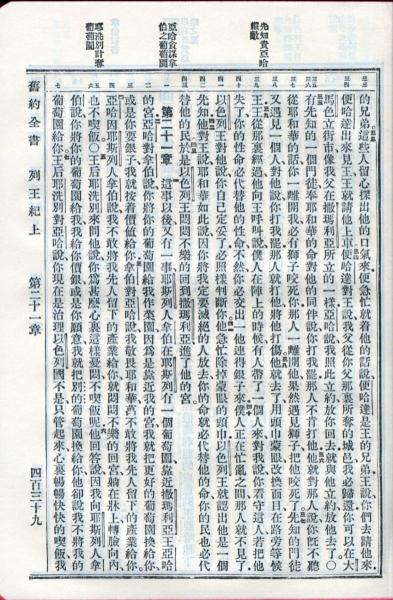 先知責亞哈
縱敵
亞哈貪謀拿
伯之葡萄園
耶洗別計奪
葡萄園
的兄弟這些人留心探出他的口氣來便急忙就着他的話說便哈達是王的兄弟王說你們去請他來
便哈達出來見王王就請他上車便哈達對王說我父從你父那裏所奪的城邑我必歸還你可以在大
馬色立街市像我父在撒瑪利亞所立的一樣亞哈說我照此立約放你回去就與他立約放他去了○
有先知的一個門徒奉耶和華的命對他的同伴說你打我罷那人不肯打他他就對那人說你旣不聽
從耶和華的話你一離開我必有獅子咬死你那人一離開他果然遇見獅子把他咬死了先知的門徒
又遇見一個人對他說你打我罷那人就打他將他打傷他就去了用頭巾蒙眼改換面目在路旁等候
王王從那裏經過他向王呼叫說僕人在陣上的時候有人帶了一個人來對我說你看守這人若把他
失了你的性命必代替他的性命不然你必交出一他連得銀子來僕人正在忙亂之間那人就不見了
以色列王對他說你自己定妥了必照樣判斷你他急忙除掉蒙眼的頭巾以色列王就認出他是一個
先知他對王說耶和華如此說因你將我定要滅絕的人放去你的命就必代替他的命你的民也必代
替他的民於是以色列王悶悶不樂的回到撒瑪利亞進了他的宮
第二十一章 這事以後又有一事耶斯列人拿伯在耶斯列有一個葡萄園靠近撒瑪利亞王亞哈
的宮亞哈對拿伯說你將你的葡萄園給我作菜園因爲是靠近我的宮我就把更好的葡萄園換給你
或是你要銀子我就按着價值給你拿伯對亞哈說我敬畏耶和華萬不敢將我先人留下的產業給你
亞哈因耶斯列人拿伯說我不敢將我先人留下的產業給你就悶悶不樂的回宮躺在牀上轉臉向內
也不喫飯○王后耶洗別來問他說你爲甚麼心裏這樣憂悶不喫飯呢他回答說因我向耶斯列人拿
伯說你將你的葡萄園給我我給你價銀或是你願意我就把別的葡萄園換給你他卻說我不將我的
葡萄園給你王后耶洗別對亞哈說你現在是治理以色列國不是只管起來心裏暢暢快快的喫飯我
舊約全書 列王紀上 第二十一章 四百三十九